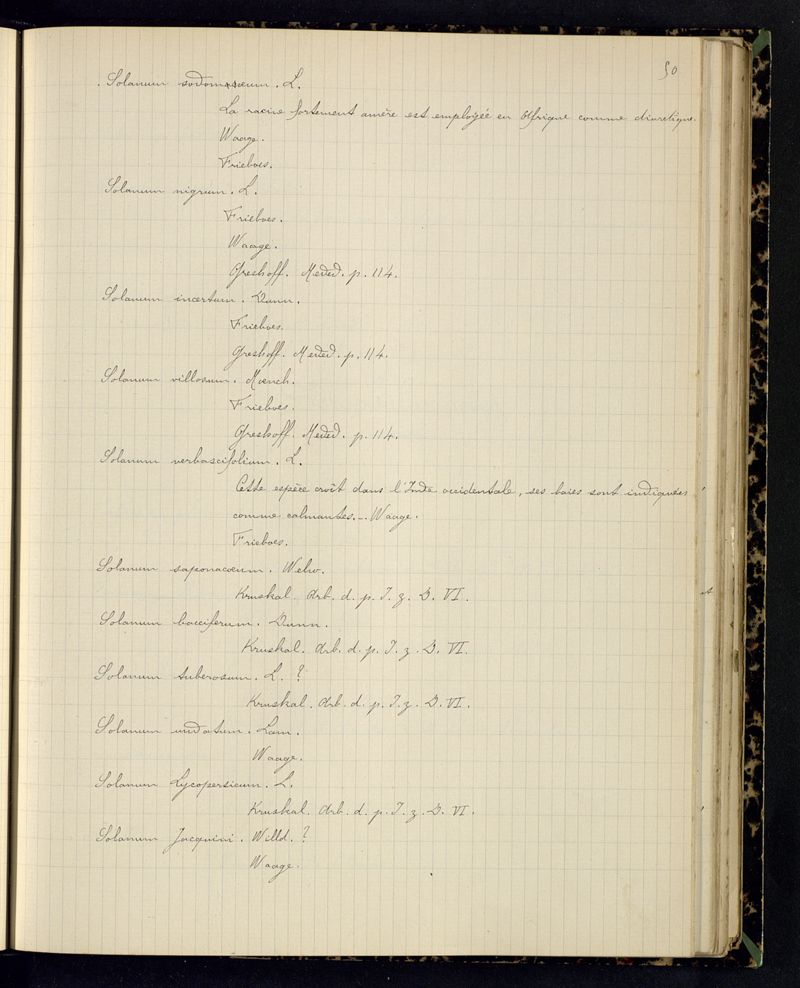 50
Solanum sodomæum. L.
La racine fortement amère est employée en Afrique comme diuretique.
Waage.
Frieboes.
Solanum nigrum. L.
Frieboes.
Waage.
Greshoff. Meded. p. 114.
Solanum incertum. Dunn.
Frieboes.
Greshoff. Meded. p. 114.
Solanum villosum. Mœnch.
Frieboes.
Greshoff. Meded. p. 114.
Solanum verbascifolium. L.
Cette espèce croît dans l'Inde occidentale, ses baies sont indiquées
comme calmantes. _ Waage.
Frieboes.
Solanum saponaceum. Welw.
Kruskal. Arb. d. p. I. z. D. VI.
Solanum bacciferum. Dunn.
Kruskal. Arb. d. p. I. z. D. VI.
Solanum tuberosum. L. ?
Kruskal. Arb. d. p. I. z. D. VI.
Solanum undatum. Lam.
Waage.
Solanum Lycopersicum. L.
Kruskal. Arb. d. p. I. z. D. VI.
Solanum Jacquini. Willd. ?
Waage.